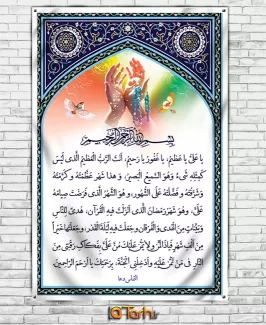 بسم الله الرحمن الرحیم
یا عَلِیُّ یا عَظیمُ، یا غَفُورُ یا رَحیمُ، أَنْتَ الرَّبُّ الْعَظیمُ الَّذی لَیْسَ
کَمِثْلِهِ شَیْءٌ وَهُوَ السَّمیعُ الْبَصیرُ، وَهٰذا شَهْرٌ عَظَّمْتَهُ وَکَرَّمْتَهُ
وَشَرَّفْتَهُ وَفَضَّلْتَهُ عَلَی الشُّهُورِ، وَهُوَ الشَّهْرُ الَّذی فَرَضْتَ صِیامَهُ
عَلَیَّ، وَهُوَ شَهْرُ رَمَضانَ الَّذی أَنْزَلْتَ فیهِ الْقُرْآنَ، هُدیً لِلنَّاسِ
وَبَیِّناتٍ مِنَ الْهُدی وَالْفُرْقانِ وَجَعَلْتَ فیهِ لَیْلَةَ الْقَدْرِ، وَجَعَلْتَها خَیْراً
مِنْ أَلْفِ شَهْرٍ فَیاذَا الْمَنِّ وَلا یُمَنُّ عَلَیْکَ مُنَّ عَلَیَّ بِفَکاکِ رَقَبَتی مِنَ
النَّارِ فی مَنْ تَمُنُّ عَلَیْهِ وَأَدْخِلْنِی الْجَنَّةَ، بِرَحْمَتِکَ یا أَرْحَمَ الرَّاحِمینَ.
التماس دعا
Tarhir